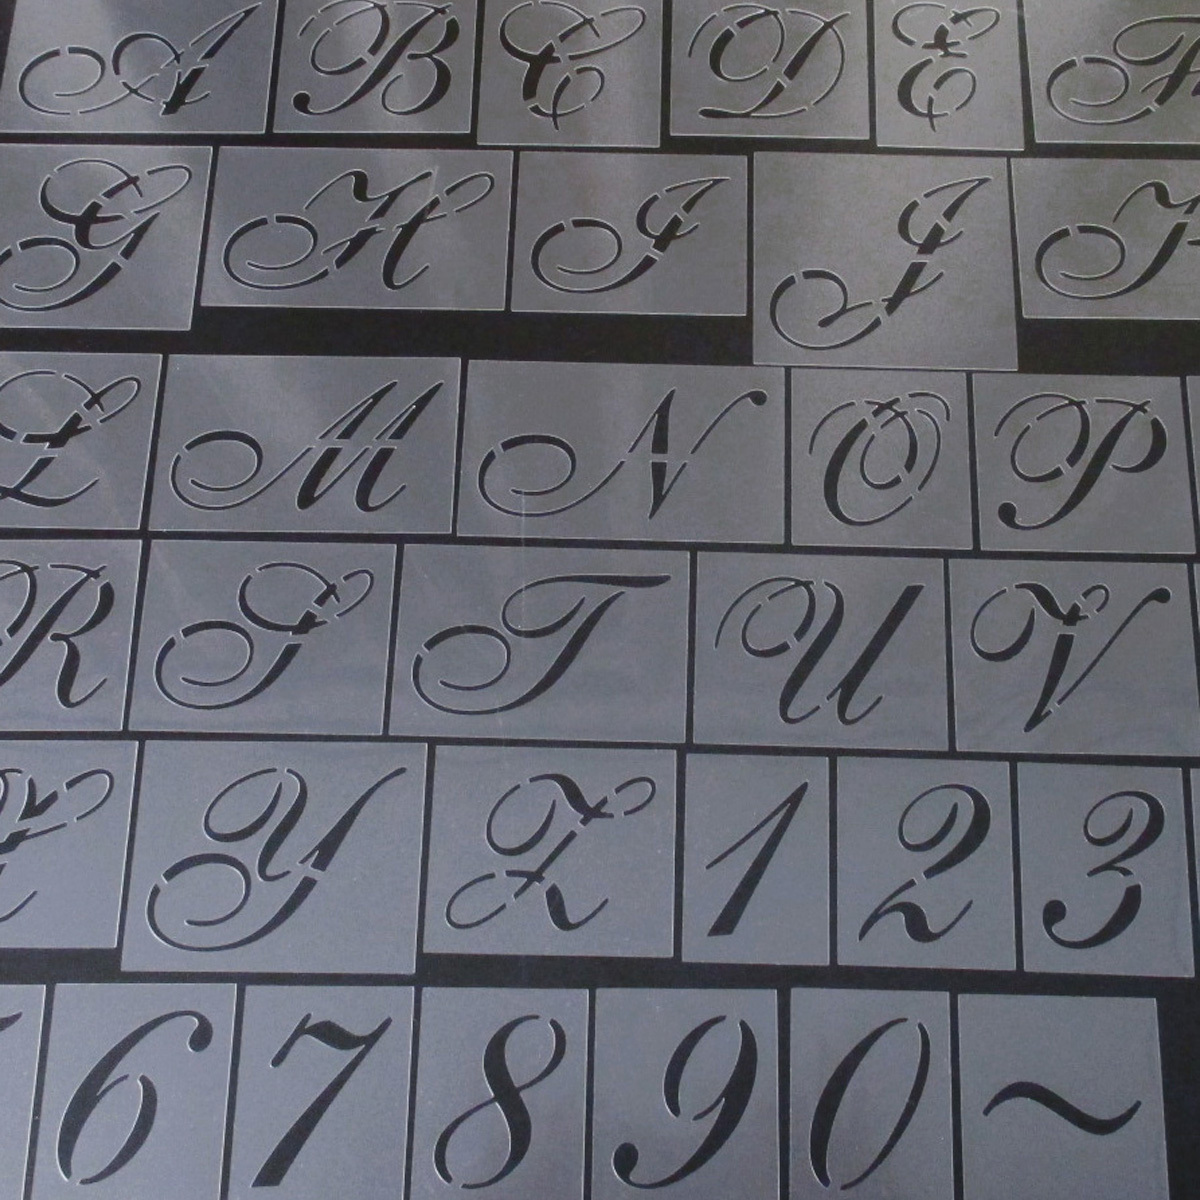 A B C D E F
G H I J K
L M N O P
R S T U V
X Y Z 1 2 3
6 7 8 9 0 ~